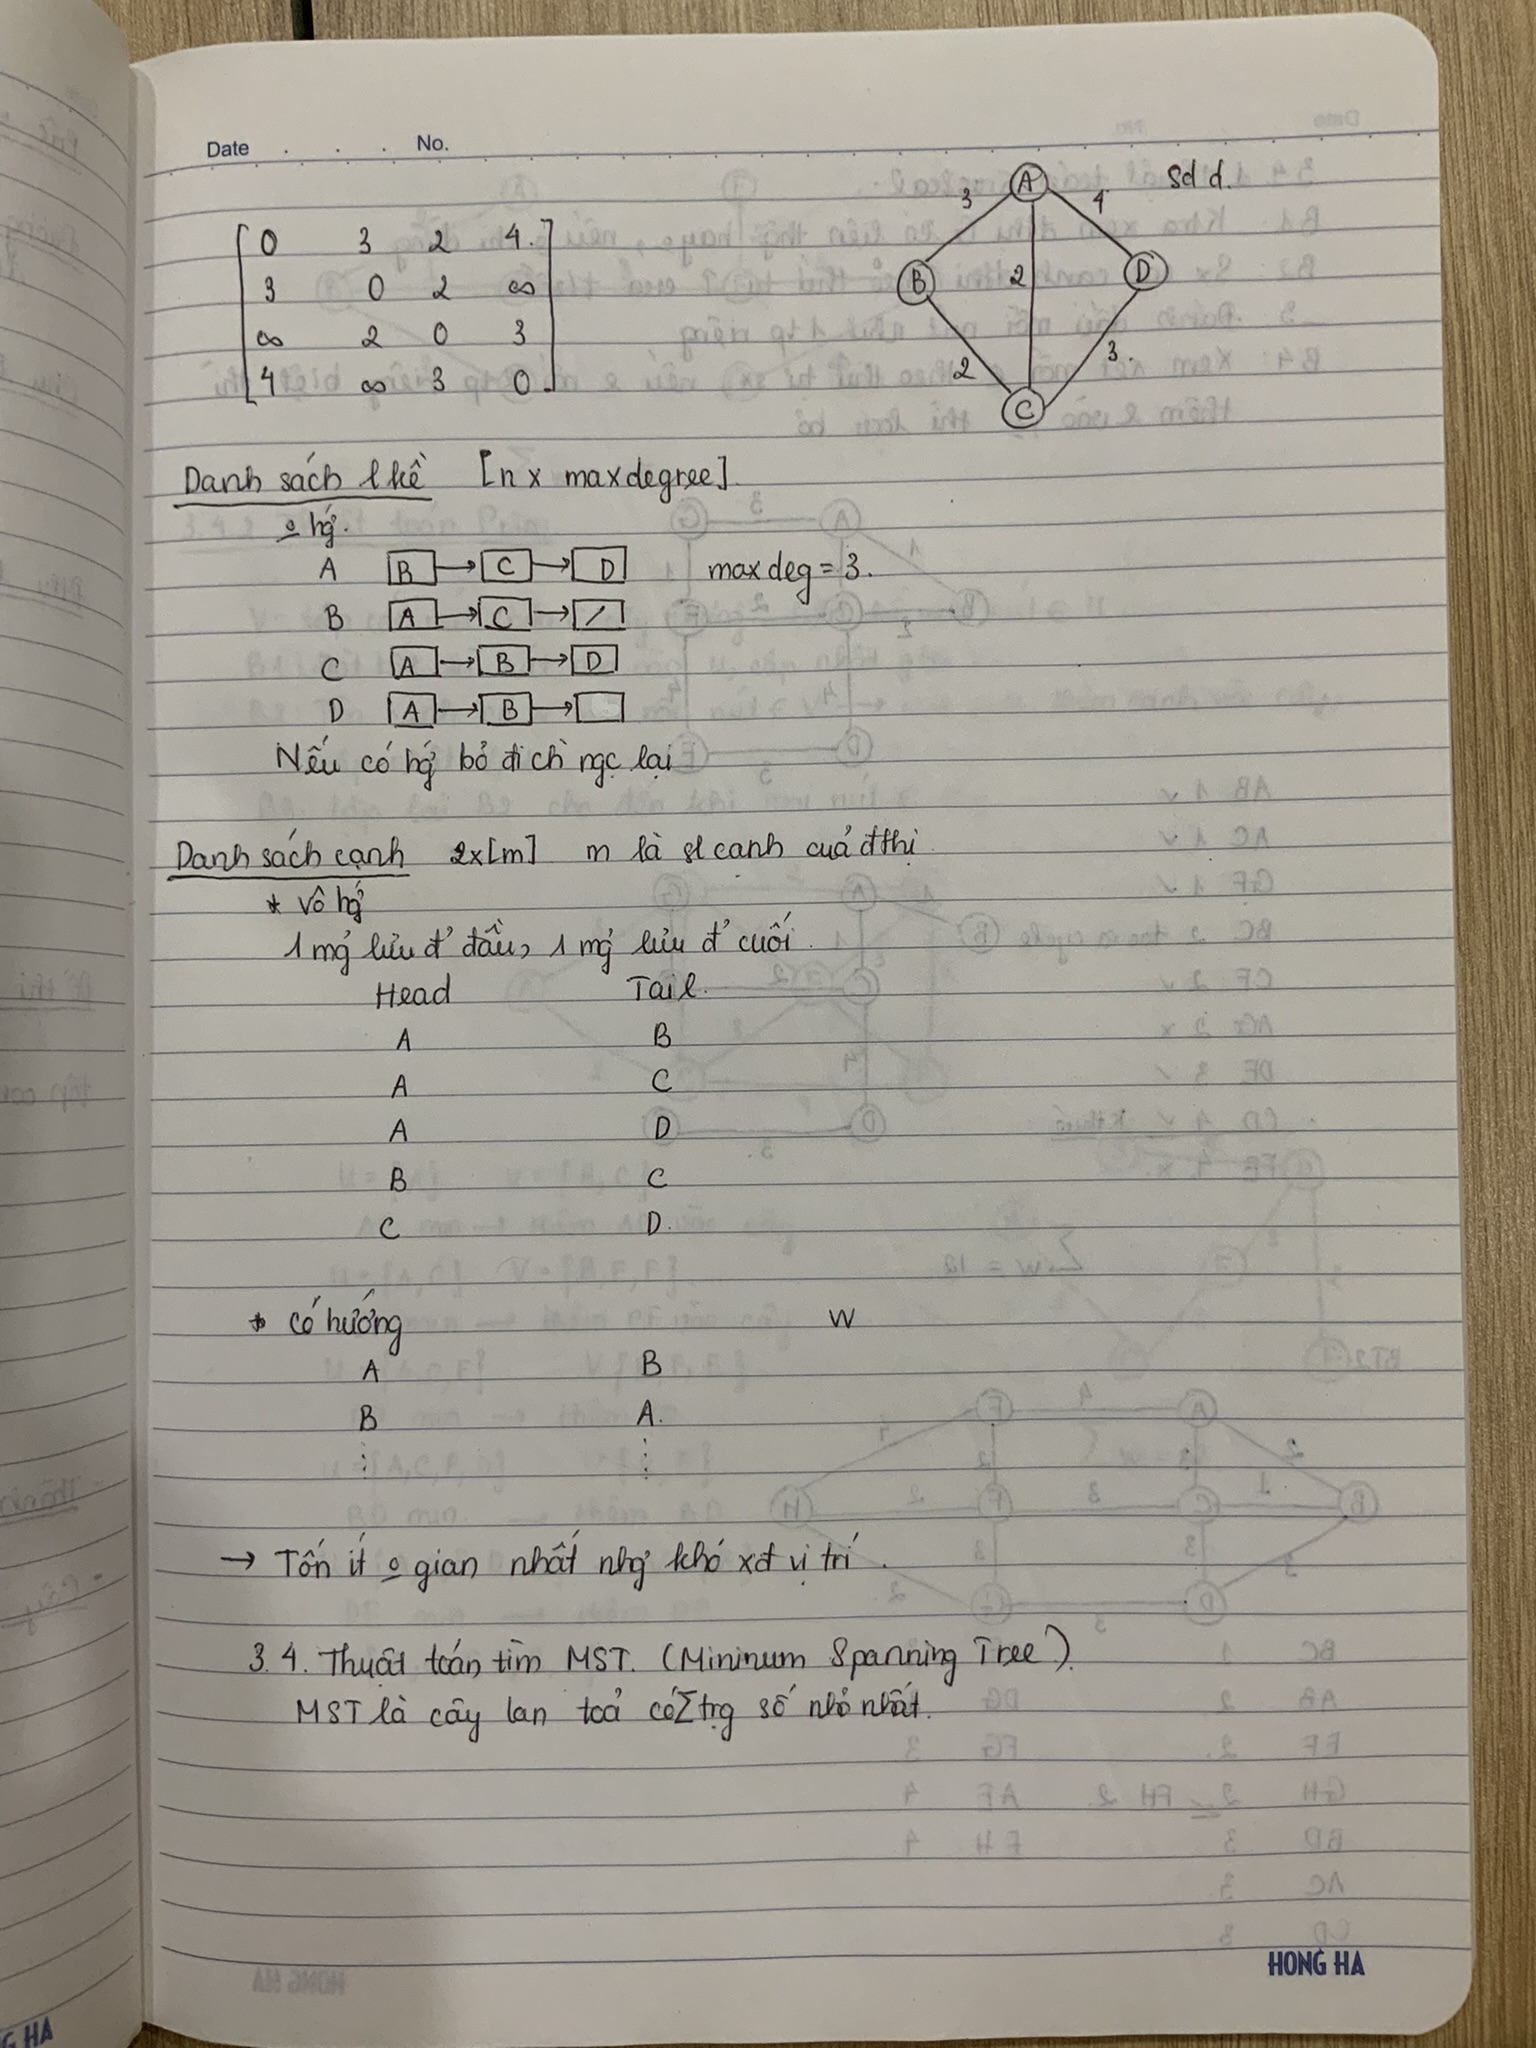 Date . . . No.
sd d.
A
3 4
B 2 D
2 3.
C
0 3 2 4.
3 0 2 ∞
∞ 2 0 3
4 ∞ 3 0
Danh sách l kề [n x maxdegree].
o hg̉.
A B → C → D max deg = 3.
B A → C → /
C A → B → D
D A → B →
Nếu có hg̉ bỏ đi ch ngc lại
Danh sách cạnh 2x[m] m là sl canh cuả đthị
* vô hg̉
1 mg̉ lưu đ' đầu, 1 mg̉ lưu đ' cuối.
Head Tail.
A B
A C
A D
B C
C D.
* có hướng W
A B
B A.
⋮ ⋮
→ Tốn ít o gian nhất nhg khó xđ vị trí.
3.4. Thuật toán tìm MST. (Mininum Spanning Tree).
MST là cây lan toả có Σ trg số nhỏ nhất.
HONG HA